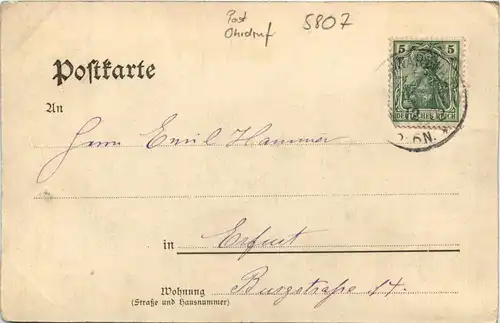 Post
Ohrdruf
5807
5 5
DEUTSCHES REICH
Postkarte
An
Herrn Emil Hammer
in Erfurt
Wohnung
(Straße und Hausnummer)
Burgstraße 14.